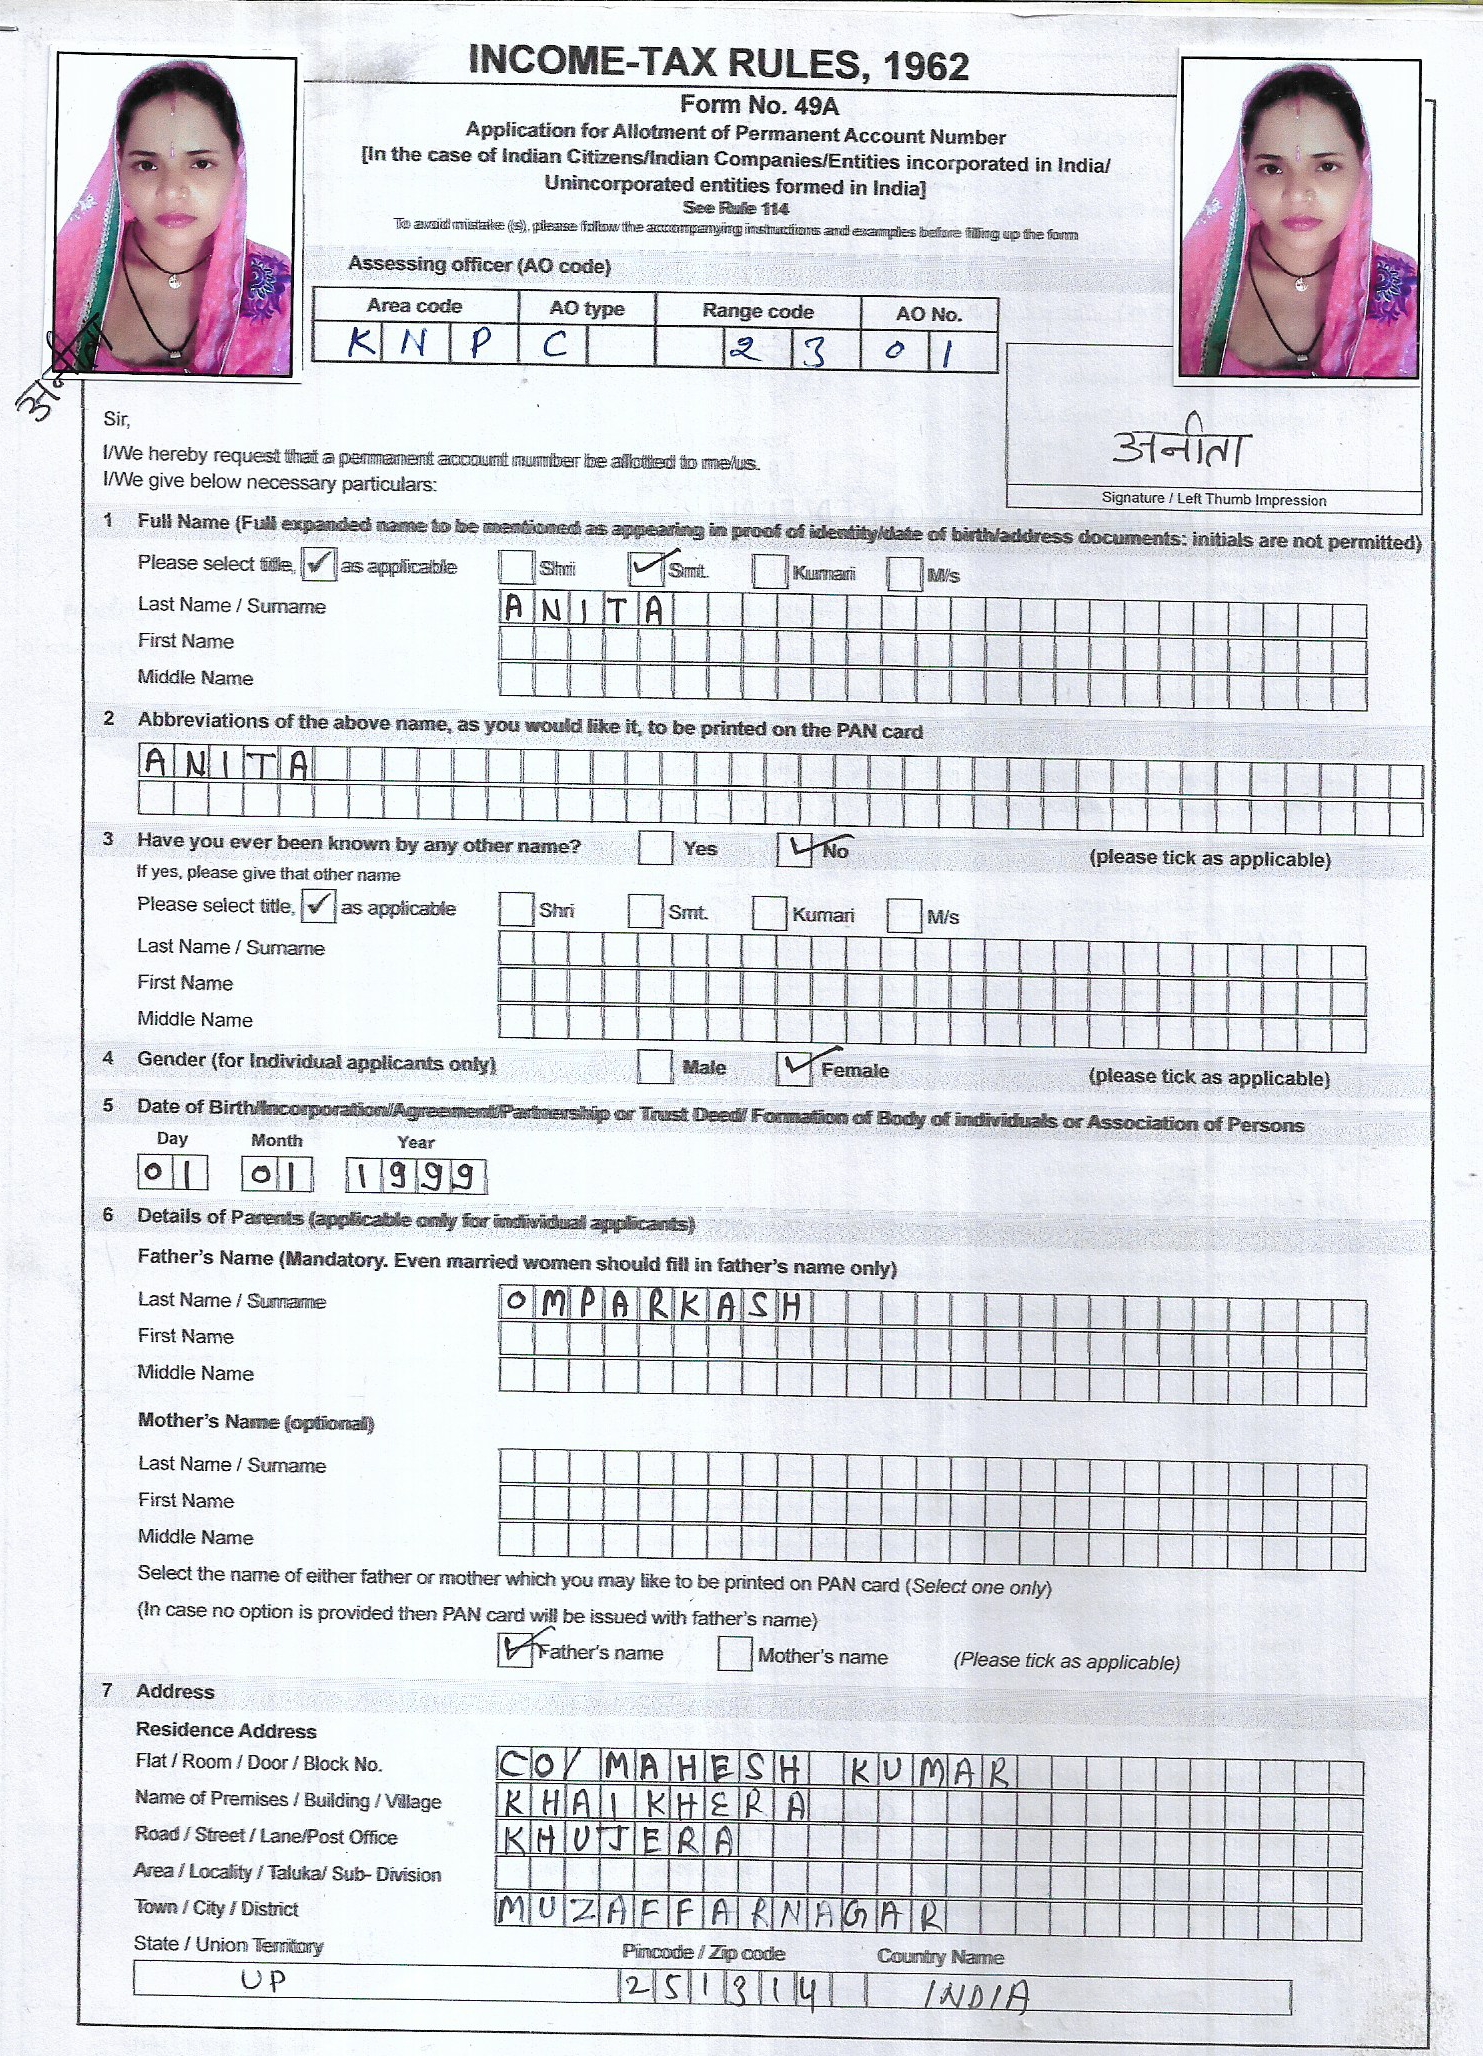 INCOME-TAX RULES, 1962
Form No. 49A
Application for Allotment of Permanent Account Number
[In the case of Indian Citizens/Indian Companies/Entities incorporated in India/
Unincorporated entities formed in India]
See Rule 114
To avoid mistake (s), please follow the accompanying instructions and examples before filling up the form
Assessing officer (AO code)
Area code AO type Range code AO No.
KNP C 23 01
अनीता
अनीता
Signature / Left Thumb Impression
Sir,
I/We hereby request that a permanent account number be allotted to me/us.
I/We give below necessary particulars:
1 Full Name (Full expanded name to be mentioned as appearing in proof of identity/date of birth/address documents: initials are not permitted)
Please select title, ✓ as applicable Shri ✓ Smt. Kumari M/s
Last Name / Surname ANITA
First Name
Middle Name
2 Abbreviations of the above name, as you would like it, to be printed on the PAN card
ANITA
3 Have you ever been known by any other name? Yes ✓ No (please tick as applicable)
If yes, please give that other name
Please select title, ✓ as applicable Shri Smt. Kumari M/s
Last Name / Surname
First Name
Middle Name
4 Gender (for Individual applicants only) Male ✓ Female (please tick as applicable)
5 Date of Birth/Incorporation/Agreement/Partnership or Trust Deed/ Formation of Body of individuals or Association of Persons
Day Month Year
01 01 1999
6 Details of Parents (applicable only for individual applicants)
Father's Name (Mandatory. Even married women should fill in father's name only)
Last Name / Surname OMPARKASH
First Name
Middle Name
Mother's Name (optional)
Last Name / Surname
First Name
Middle Name
Select the name of either father or mother which you may like to be printed on PAN card (Select one only)
(In case no option is provided then PAN card will be issued with father's name)
✓ Father's name Mother's name (Please tick as applicable)
7 Address
Residence Address
Flat / Room / Door / Block No. CO/ MAHESH KUMAR
Name of Premises / Building / Village KHAIKHERA
Road / Street / Lane/Post Office KHUJERA
Area / Locality / Taluka/ Sub- Division
Town / City / District MUZAFFARNAGAR
State / Union Territory Pincode / Zip code Country Name
UP 251314 INDIA